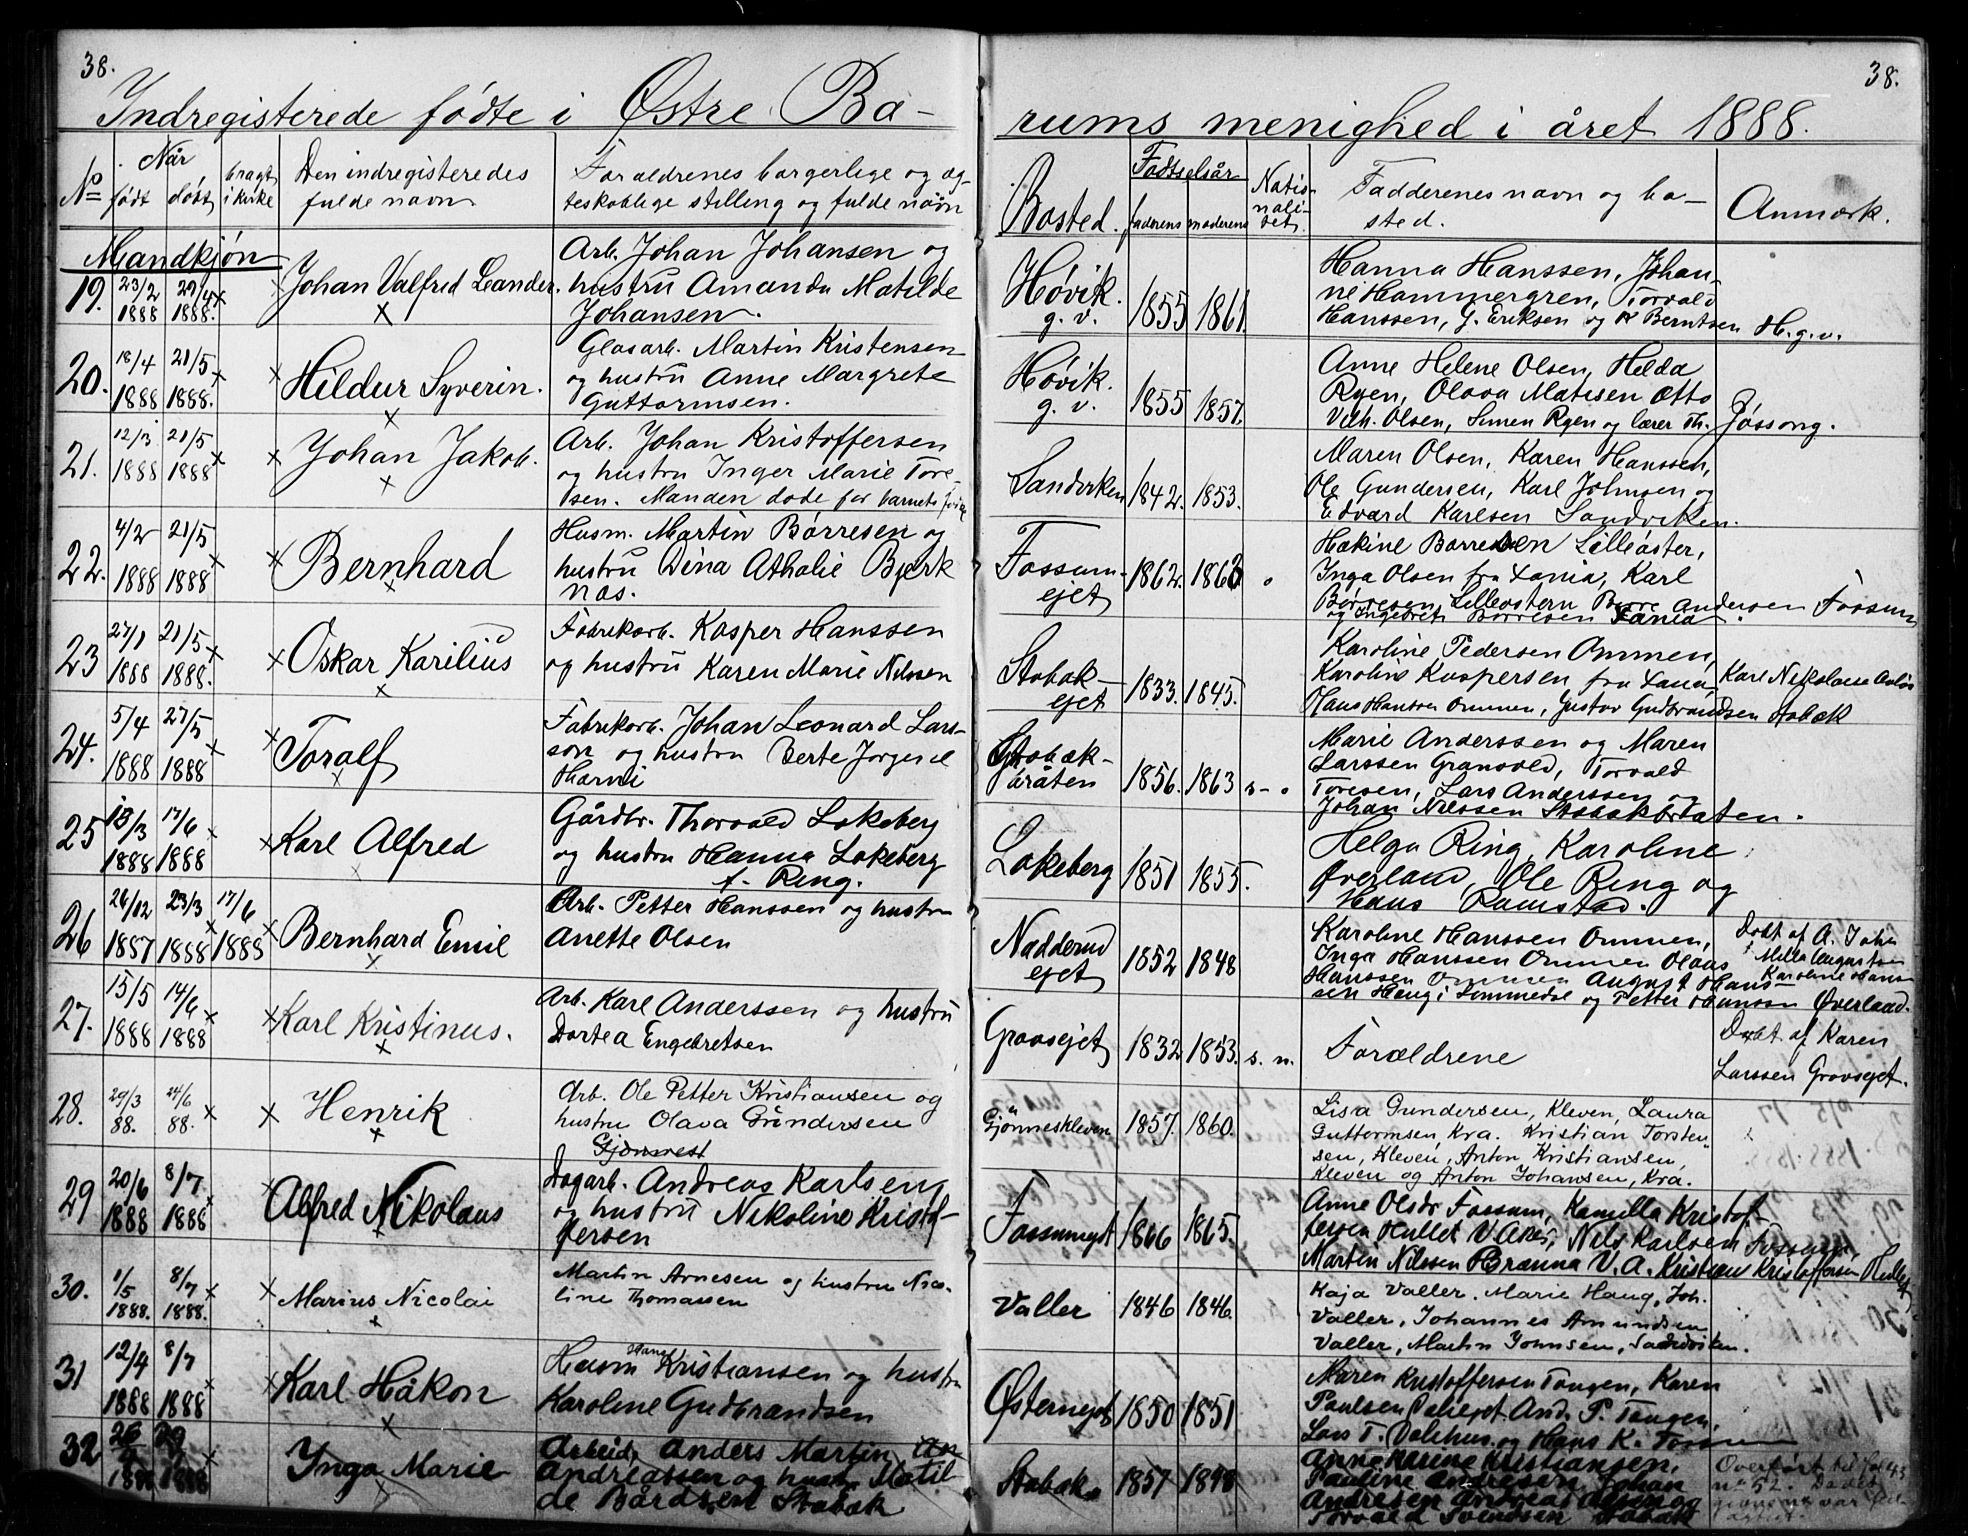 38.
38.
Indregisterede födte i Østre Bæ-
rums menighed i året 1888.
No
Når
födt
döbt
bragt
i kirke
Den indregisteredes
fulde navn
Forældrenes borgerlige og æg-
teskablige stilling og fulde navn
Bosted.
Fødselsår
faderens
moderens
Natio-
nali-
tet.
Faddernes navn og bo-
sted.
Anmærk.
Mandkjøn
19. 23/2 1888 29/4 1888. x Johan Valfred Leander. x
Arb. Johan Johansen og
hustru Amanda Matilde
Johansen.
Høvik. g. v. 1855 1861
Hanna Hanssen, Johan-
ne Hammergren, Torvald
Hanssen, G. Eriksen og K Berntsen H. g. v.
20. 18/4 1888 21/5 1888. x x Hildur Syverin. x
Glasarb. Martin Kristensen
og hustru Anne Margrete
Guttormsen.
Høvik. g. v. 1855 1857.
Anne Helene Olsen, Helda
Ryen, Olava Matisen Otto
Vilh. Olsen, Simen Ryen og lærer Th. Jössong.
21. 12/3 1888 21/5 1888 x x Johan Jakob. x
Arb. Johan Kristoffersen
og hustru Inger Marie Tore
sen. Manden døde før barnets
Sandviken 1842. 1853.
Maren Olsen, Karen Hanssen,
Ole Gundersen, Karl Johnsen og
Edvard Karlsen Sandviken.
22. 4/2 1888 21/5 1888 x x Bernhard x
Husm. Martin Börresen og
hustru Dina Athalie Bjerk
næs.
Fossum- ejet 1862. 1863
Hakine Börresen Lilleöster,
Inga Olsen fra Xania, Karl
Börresen Lilleöstern Börre Andersen Fossum
og Ingebret Börresen Xania.
23 27/1 1888 21/5 1888. x x Oskar Karilius x
Fabrikarb. Kasper Hanssen
og hustru Karen Marie Nilssen
Stabæk- ejet 1833. 1845.
Karoline Pedersen Ommen,
Karoline Kaspersen fra Xania Karl Nikolaus
Hans Hansen Ommen, Gustav Gudbrandsen Stabæk
24. 5/4 1888 27/5 1888 x x Toralf x
Fabrikarb. Johan Leonard Lars-
son og hustru Berte Jörgine
Stabæk- bråten 1856. 1863 s-
Marie Anderssen og Maren
Larssen Gransvold, Torvald
Toresen, Lars Anderssen og
Johan Nilssen Stabækbråten.
25 13/3 1888 17/6 1888 x x Karl Alfred x
Gårdbr. Thorvald Lökeberg
og hustru Hanna Lökeberg
f. Ring.
Lökeberg 1851 1855.
Helga Ring, Karoline
Øverland, Ole Ring og
Hans Ramstad.
26 26/12 1887 23/3 1888 17/6 1888 x Bernhard Emil x
Arb. Petter Hanssen og hustru
Anette Olsen
Nadderud ejet 1852 1848
Karoline Hanssen Ommen,
Inga Hanssen Ommen Olaus
Hanssen Ommen August Hans-
sen Haug i Lommedal og Petter Hanssen Øverland.
Döbt af A. John
Milla Augusta
Karoline Hans
27. 15/5 1888 14/6 1888 x x Karl Kristinus. x
Arb. Karl Anderssen og hustru
Dortea Engebretsen
Gravsejet 1832 1853. s. n.
Forældrene
Döbt af Karen
Larssen Gravsejet.
28. 29/3 88. 24/6 88. x x Henrik x
Arb. Ole Petter Kristiansen og
hustru Olava Gundersen
Gjönneskleven 1857. 1860.
Lisa Gundersen, Kleven, Laura
Guttormsen, Kra. Kristian Torsten-
sen, Kleven, Anton Kristiansen,
Kleven og Anton Johansen, Kra.
29 20/6 1888 8/7 1888 x Alfred Nikolaus x
Dagarb. Andreas Karlsen
og hustru Nikoline Kristof-
fersen
Fossumejet 1866 1865.
Anne Olsdr Fossum, Kamilla Kristof-
fersen Hullet V Aker, Nils Karlsen Fossumejet,
Martin Nilssen Brænna V. A. Kristian Kristoffersen Hullet
30. 1/5 1888. 8/7 1888. x x Marius Nicolai x
Martin Arnesen og hustru Nico-
line Thomassen
Valler 1846 1846.
Kaja Valler, Marie Haug, Joh.
Valler, Johannes Amundsen
Valler, Martin Johnsen, Sandviken.
31 12/4 1888 8/7 1888 x x Karl Håkon x
Husm Hans Kristiansen og hustru
Karoline Gudbrandsen
Østernejet 1850 1851
Maren Kristoffersen Tangen, Karen
Paulsen Dalsejet And. P. Tangen,
Lars T. Dælihus og Hans K.
32 1888 1888 x Inga Marie x
Arbeid. Anders Martin
Andreassen og hustr. Matil
de Bårdsen Stabæk
Stabæk 1857 1848
Anne Marie Kristiansen,
Pauline Andresen Johan
Andresen Andreas Olsen og
Torvald Svendsen Stabæk
Overført til fol 43
no 52.